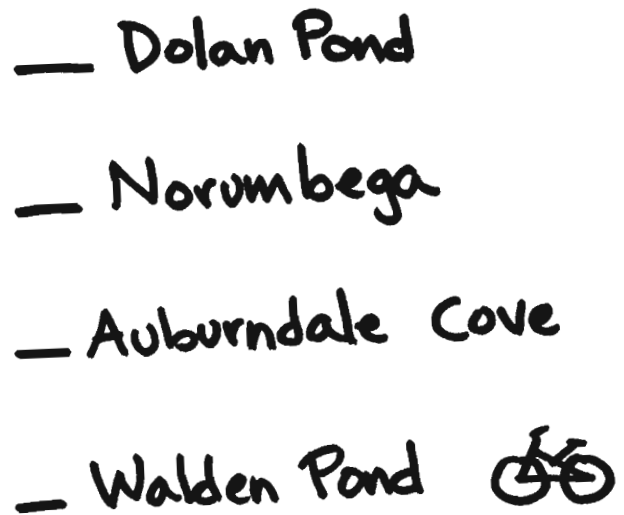 _ Dolan Pond
_ Norumbega
_ Auburndale Cove
_ Walden Pond